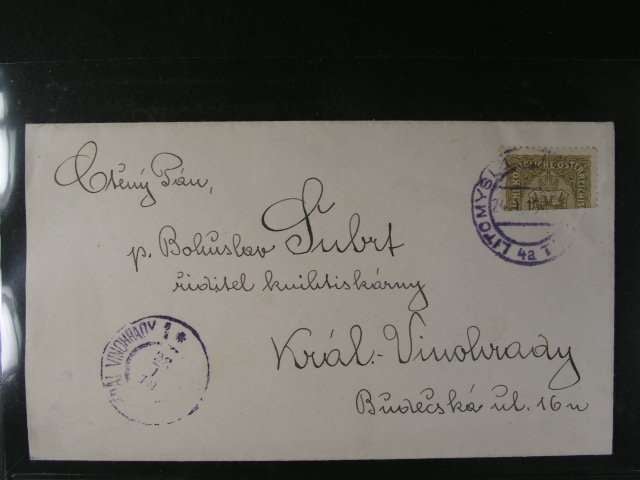 Ctěný Pán,
p. Bohuslav Šubrt
řiditel knihtiskárny
Král. Vinohrady
Budečská ul. 16 n
LITOMYŠL
42
VINOHRADY 1 *